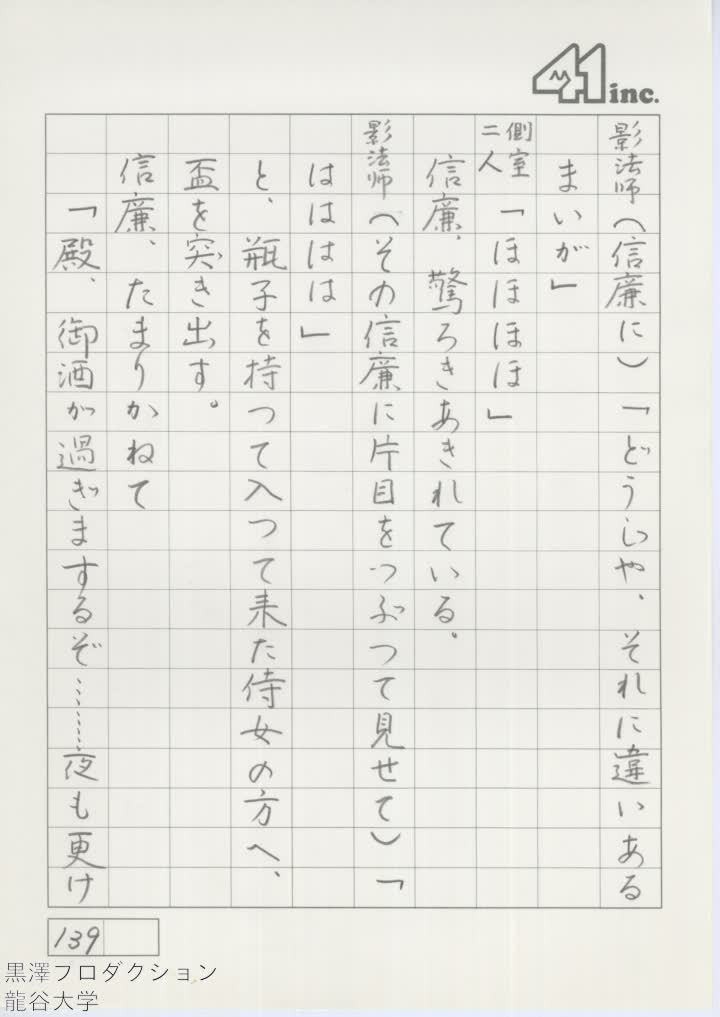 41 inc.
影法師(信廉に)「どうじや、それに違いある
まいが」
側室二人「ほほほほ」
信廉、驚ろきあきれている。
影法師(その信廉に片目をつぶつて見せて)「
はははは」
と、瓶子を持つて入つて来た侍女の方へ、
盃を突き出す。
信廉、たまりかねて
「殿、御酒が過ぎまするぞ………夜も更け
139
黒澤プロダクション
龍谷大学